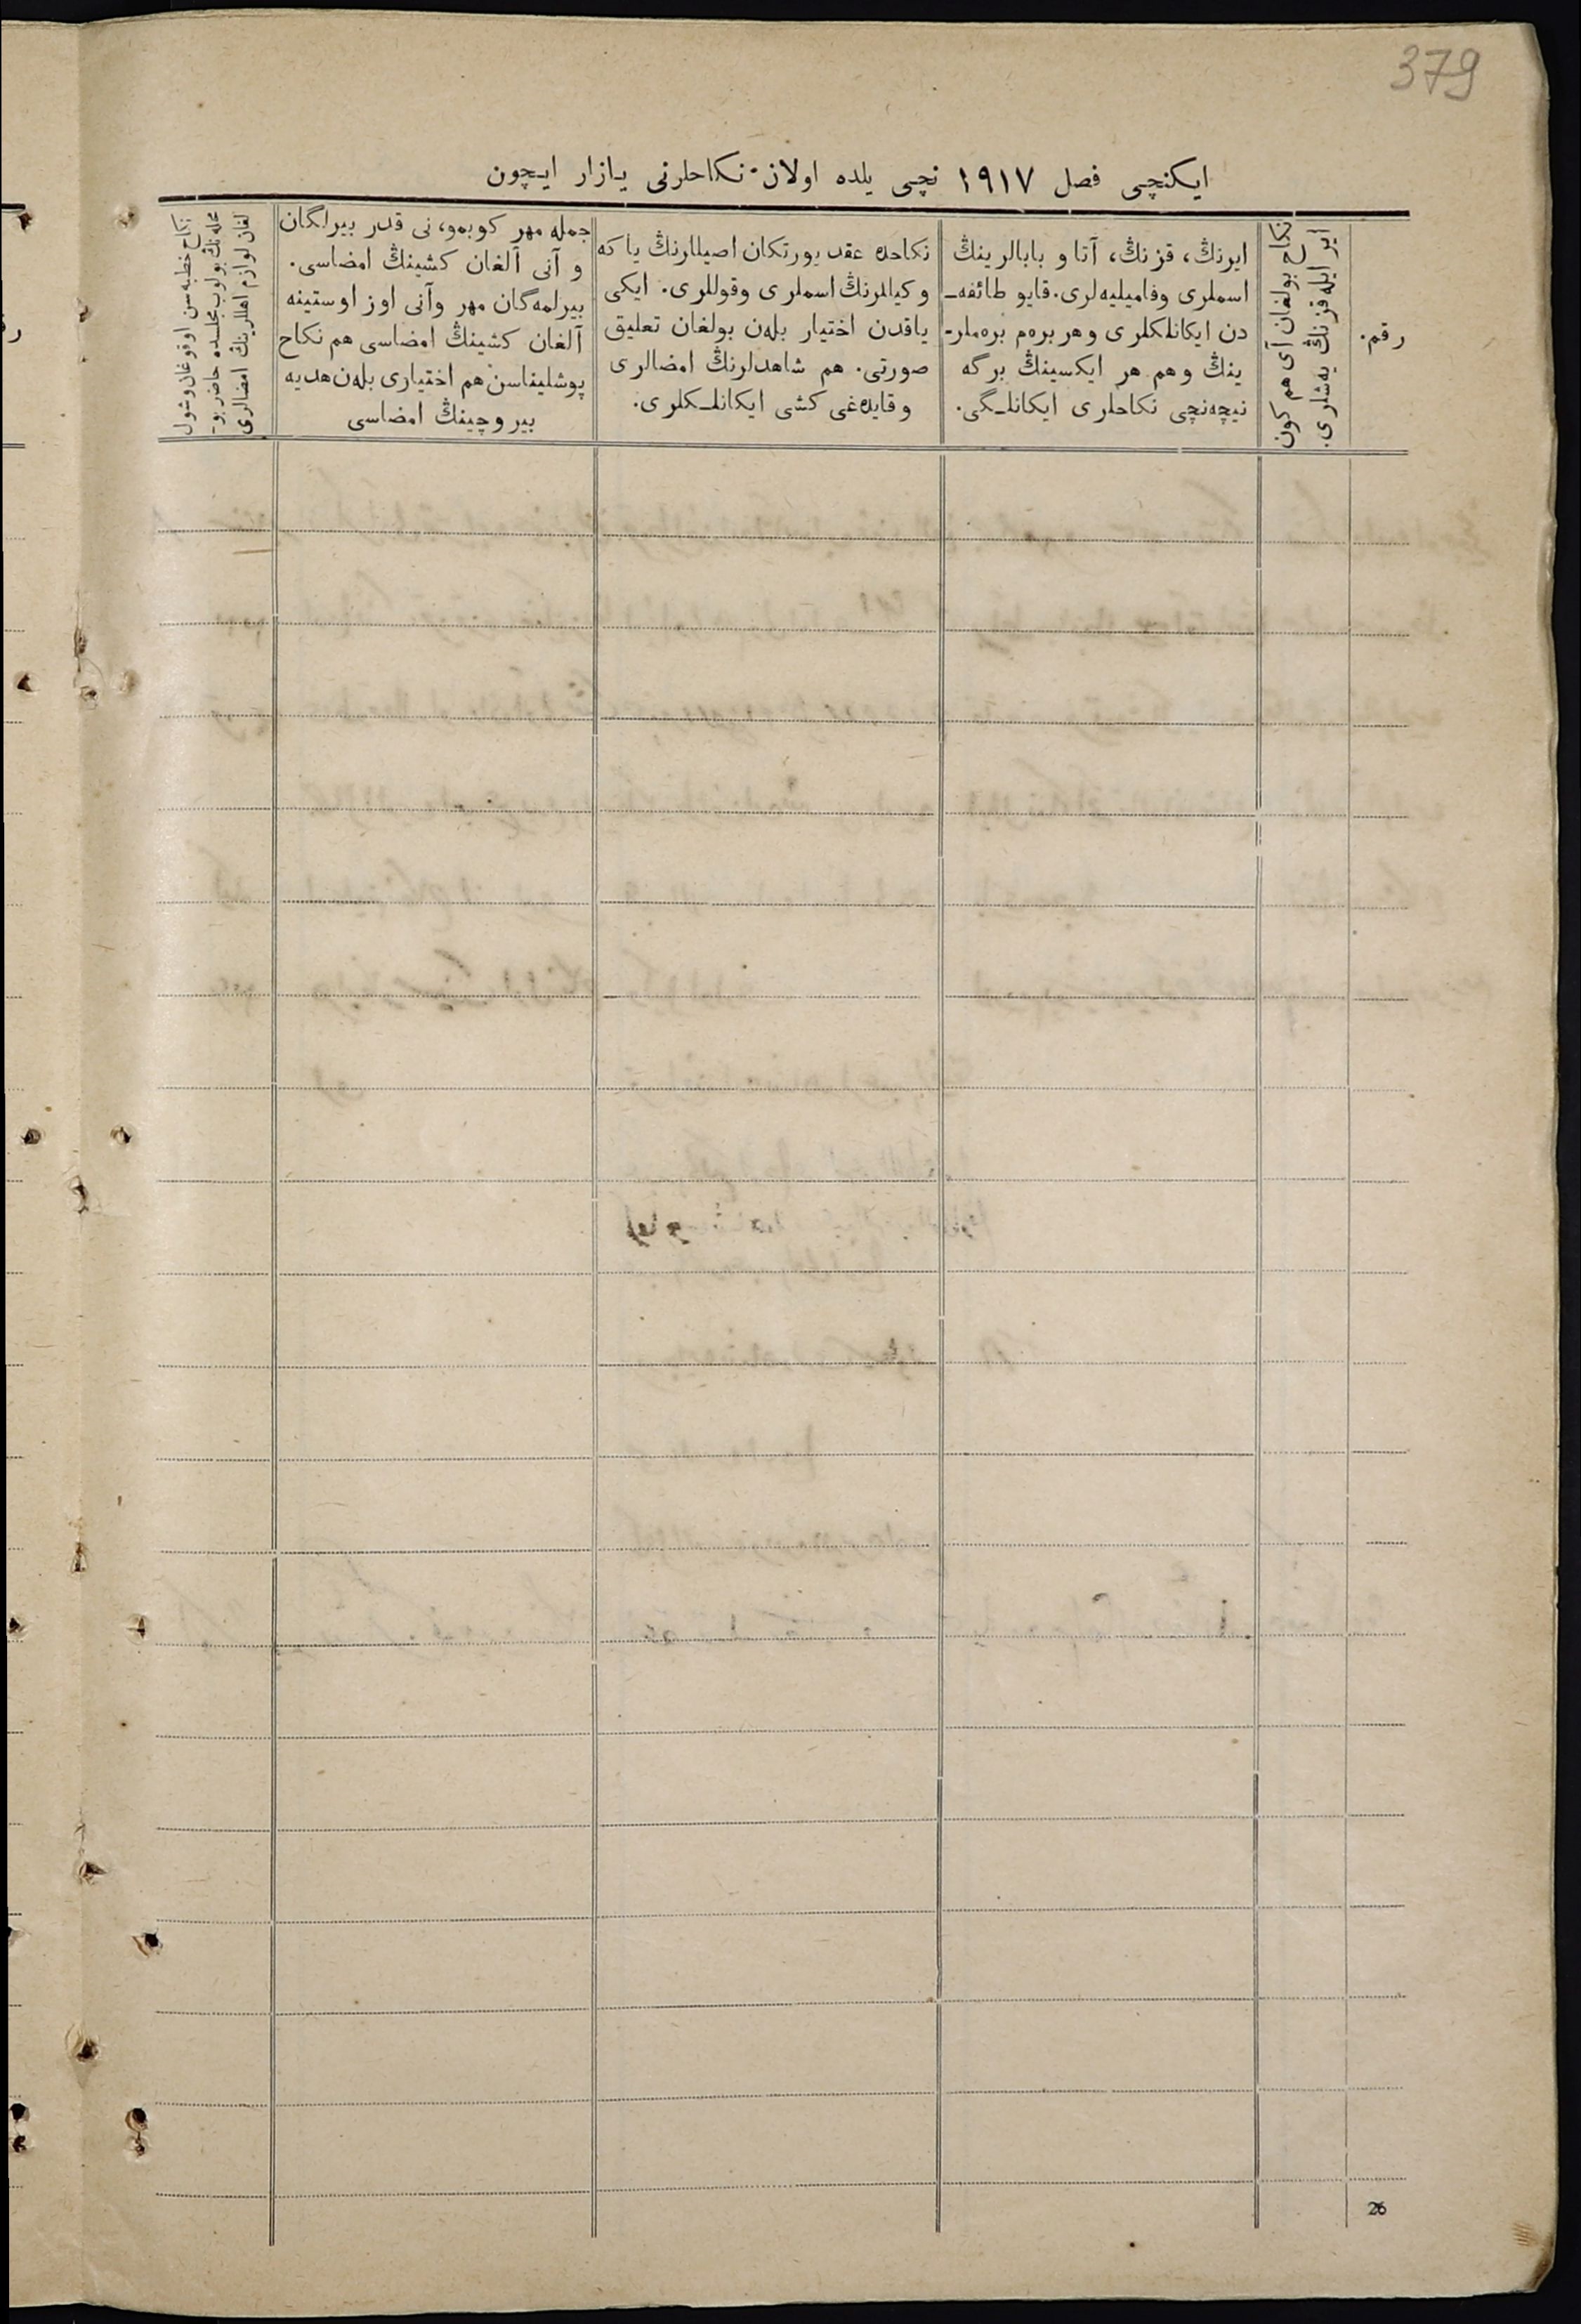 379
ایکنچی فصل ١٩١٧ نچی یلده اولان نکاحلرنی یازار ایچون
رقم.
نکاح بولغان آی هم کون
ایر ایله قزنڭ یه‌شلری.
ایرنڭ، قزنڭ، آتا و بابالرینڭ
اسملری وفامیلیه‌لری. قایو طائفه‌ـ
دن ایکانلکلری وهر بره‌م بره‌ملرـ
ینڭ وهم هر ایکسینڭ برگه
نیچه‌نچی نکاحلری ایکانلـگی.
نکاحده عقد یورتکان اصیللرنڭ یا که
وکیللرنڭ اسملری وقوللری. ایکی
یاقدن اختیار بله‌ن بولغان تعلیق
صورتی. هم شاهدلرنڭ امضالری
وقایده‌غی کشی ایکانلـکلری.
جمله مهر کوبمو، نی قدر بیرلگان
و آنی آلغان کشینڭ امضاسی.
بیرلمه‌گان مهر وآنی اوز اوستینه
آلغان کشینڭ امضاسی هم نکاح
پوشلیناسن هم اختیاری بله‌ن هدیه
بیروچینڭ امضاسی
نکاح خطبه‌سن اوقوغان وشول
محله‌نڭ بولوب مجلسده حاضر بوـ
لغان لوازم اهللرینڭ امضالری
26